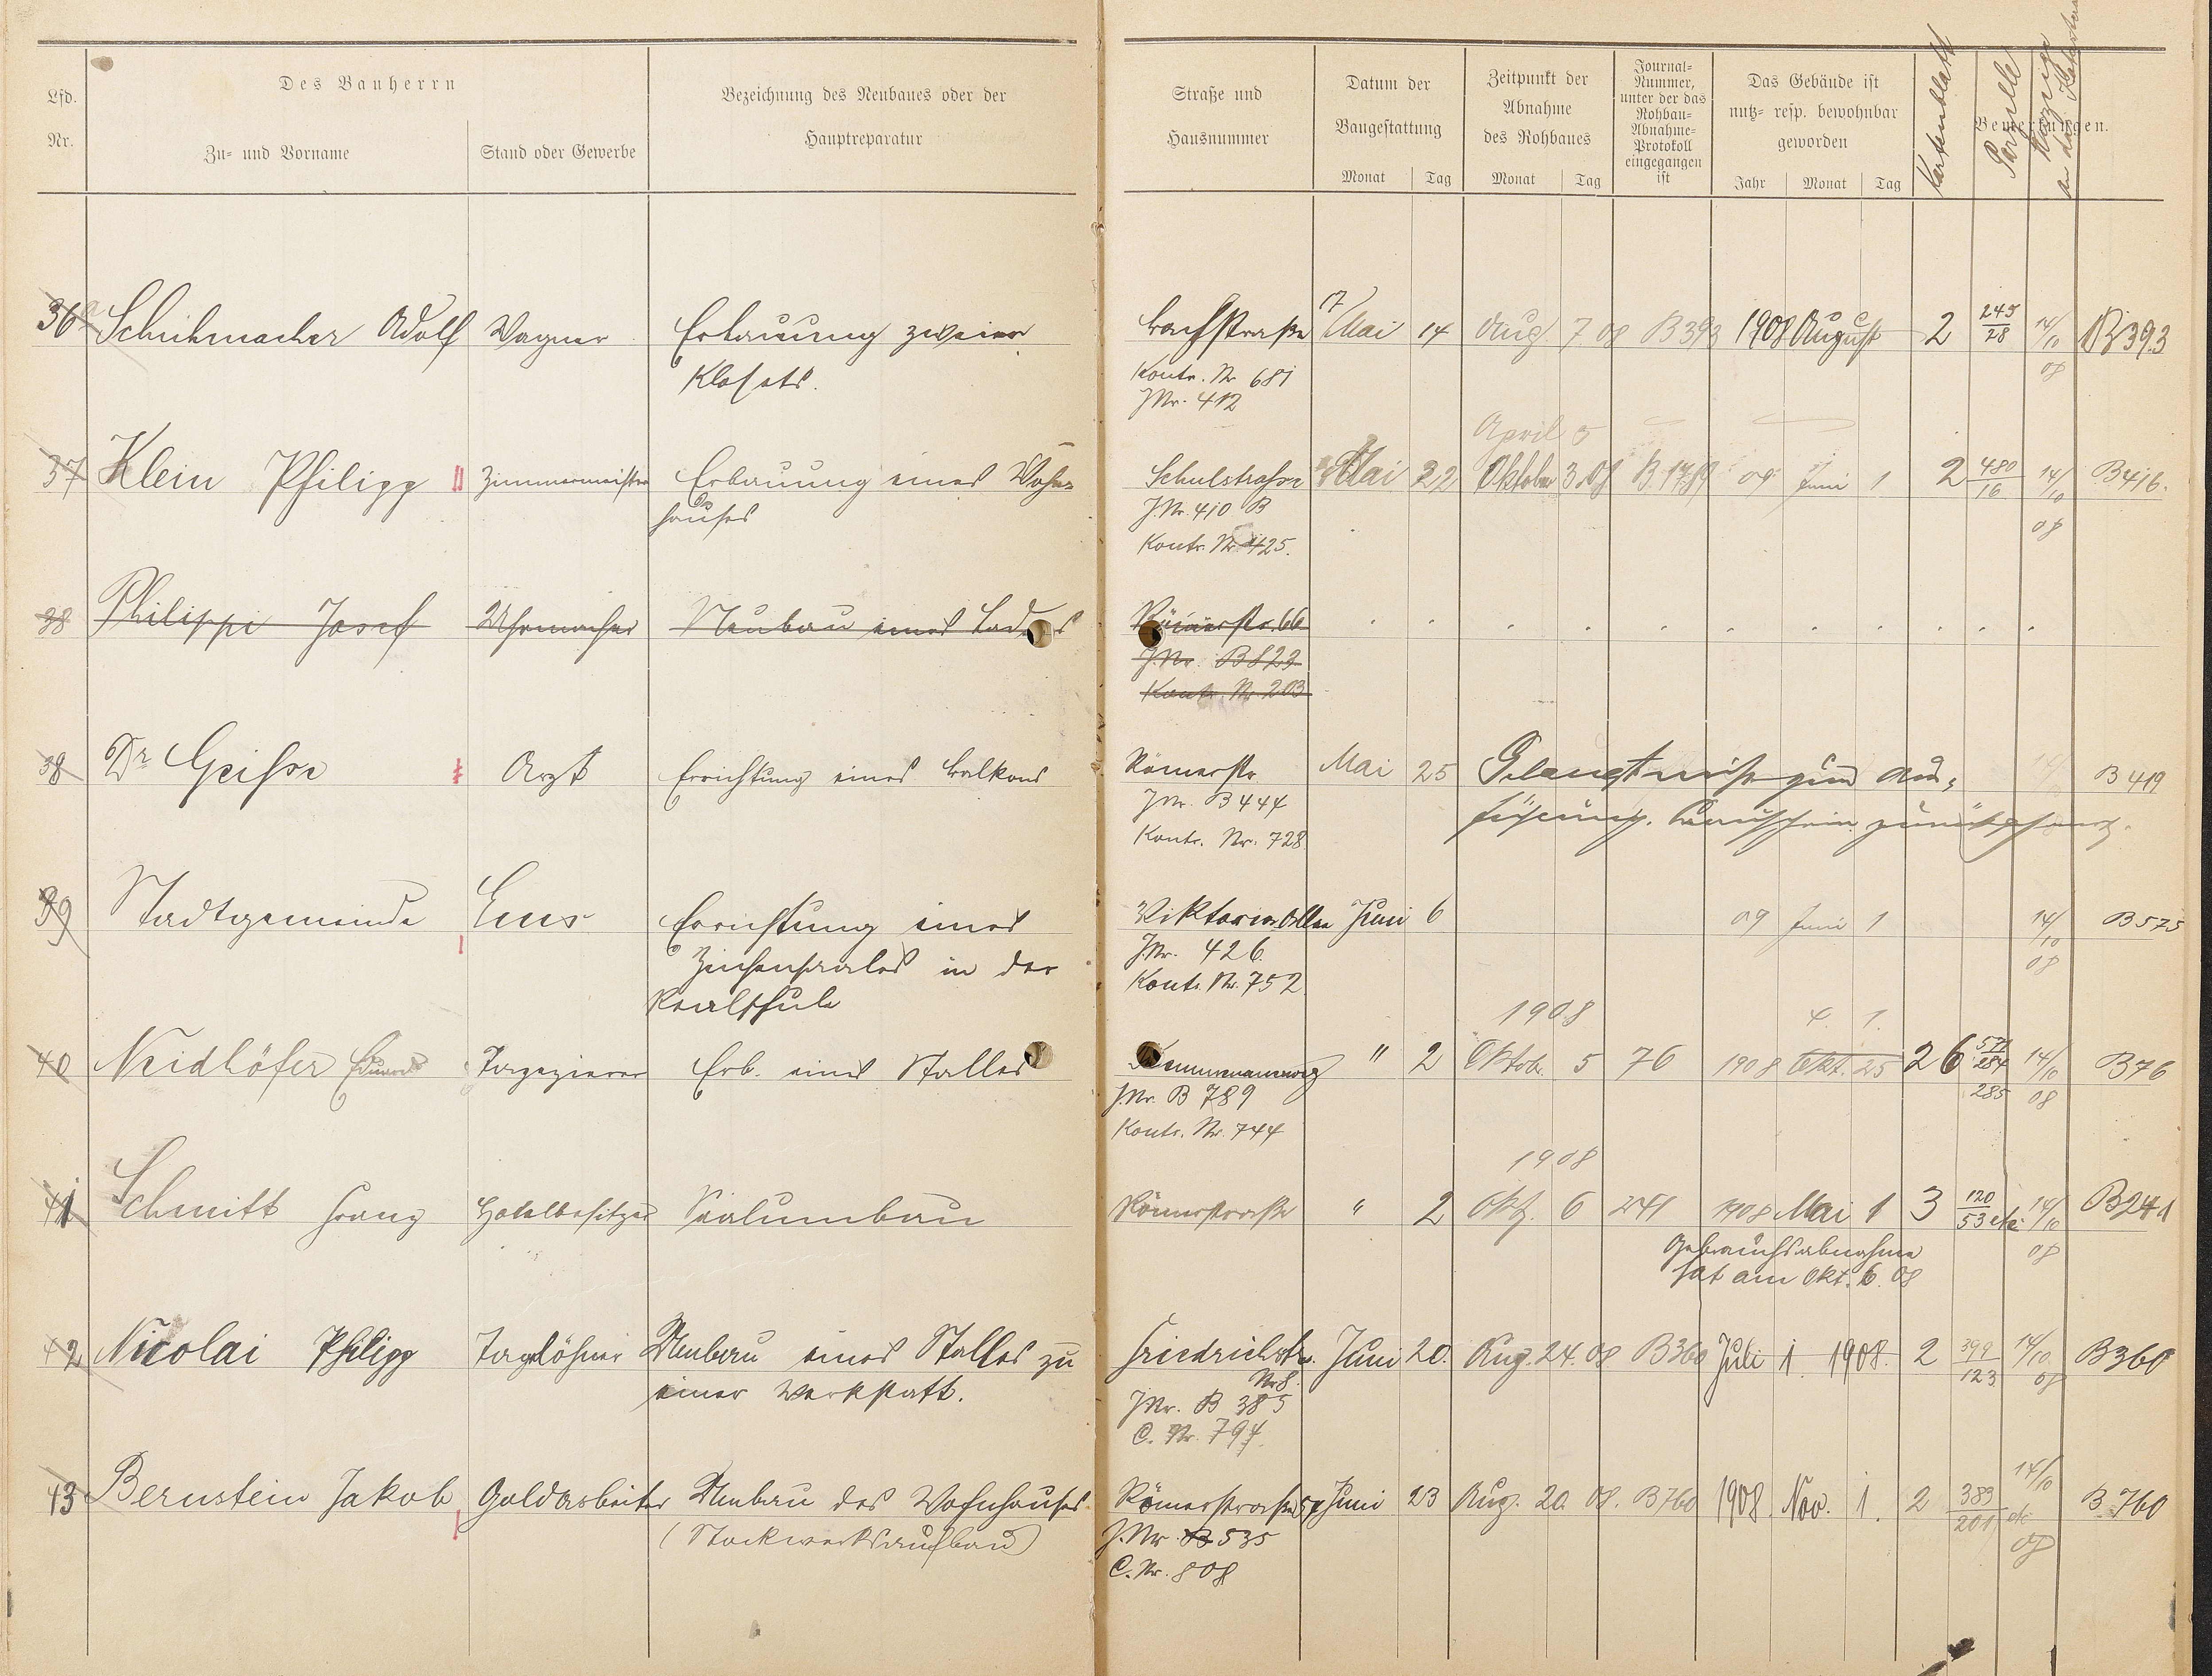 Des Bauherrn
Lfd. Nr.
Zu- und Vorname
Stand oder Gewerbe
Bezeichnung des Neubaues oder der Hauptreparatur
Straße und Hausnummer
Datum der Baugestattung
Monat Tag
Zeitpunkt der Abnahme des Rohbaues
Monat Tag
Journal-Nummer, unter der das Rohbau-Abnahme-Protokoll eingegangen ist
Das Gebäude ist nutz- resp. bewohnbar geworden
Jahr Monat Tag
Bemerkungen.
Kartenblatt
Parzelle
36 Schuhmacher Adolf Wagner Erbauung zweier Bachstraße 17/Mai 14 Aug 7 08 B 393 1908 August 2 245/28 14/10 B 393
Klosets. Kontr. Nr 681 08
JNr. 412
April 5
37 Klein Philipp II Zimmermeister Erbauung eines Wohn- Schulstrasse Mai 22 Oktober 3.08 B.1789 09 Juni 1 2 480/16 14/10 B 416.
hauses J.Nr. 410 B 08
Kontr. Nr 425.
38 Philippi Josef Uhrmacher Neubau eines Ladens Römerstr. 66
J.Nr. B 823
Kontr. Nr. 203
38 Dr Geisse Arzt Errichtung eines Balkons Römerstr. Mai 25 Gelangt nicht zur Aus- B 419
JNr. B 444 führung. Bauschein
Kontr. Nr. 728
39 Stadtgemeinde Ems Errichtung eines Viktoria Allee Juni 6 09 Juni 1 14/10 B 575
Zeichensaales in der JNr. 426. 08
Realschule Kontr. Nr. 752
1908 4. 1.
40 Neidhöfer Eduard Tapezierer Erb. eines Stalles " 2 Oktob. 5 76 1908 Okt. 25 26 571/284 14/10 B 76
J.Nr. B 789 285 08
Kontr. Nr. 744
1908
41 Schmitt Franz Hotelbesitzer Saalumbau Römerstraße " 2 Okt. 6 241 1908 Mai 1 3 120/53 etc. 14/10 B 241
Gebrauchsabnahme 08
hat am Okt. 6. 08
42 Nicolai Philipp Tagelöhner Umbau eines Stalles zu Friedrichstr. Juni 20. Aug. 24. 08 B 360 Juli 1. 1908. 2 399/123 14/10 B 360
einer Werkstatt. Nr 8. 08
JNr. B 385
C. Nr. 794
43 Bernstein Jakob Goldarbeiter Umbau des Wohnhauses Römerstrasse Juni 23 Aug. 20. 08. B 760 1908. Nov. 1. 2 383/201 etc 14/10 B 760
(Stockwerksaufbau) J.Nr. B 535 08
C. Nr. 808